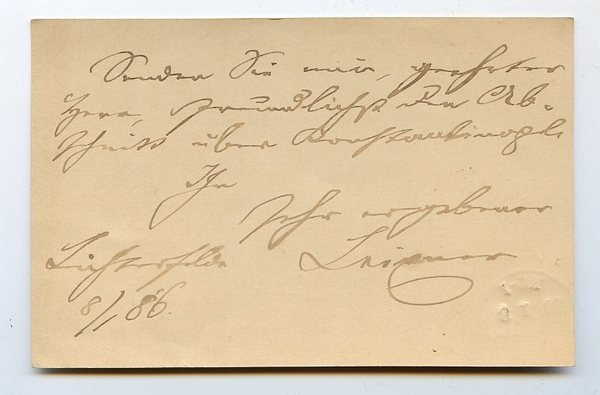 Senden Sie mir, geehrter
Herr, freundlichst den Ab-
schnitt über Konstantinopel
Ihr
sehr ergebener
Lichterfelde Leixner
8/1 86.